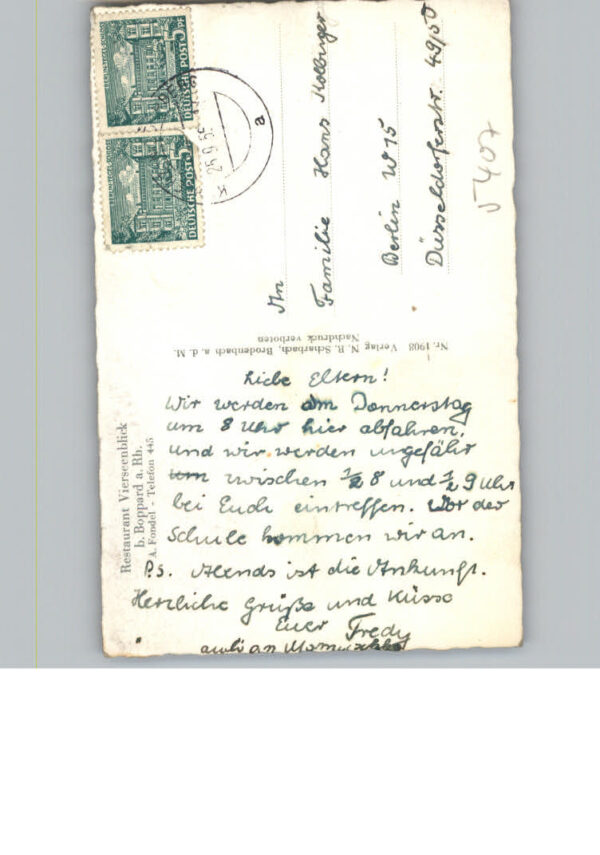 Liebe Eltern!
Wir werden am Donnerstag
um 8 Uhr hier abfahren,
und wir werden ungefähr
zwischen ½ 8 und ½ 9 Uhr
bei Euch eintreffen. Vor der
Schule kommen wir an.
P.s. Abends ist die Ankunft.
Herzliche Grüße und Küsse
Euer Fredy
auch an
Restaurant Vierseenblick
b. Boppard a. Rh.
A. Fondel - Telefon 445
Nr. 1903 Verlag N. R. Scharbach, Brodenbach a. d. M.
Nachdruck verboten
An
Familie Hans
Berlin W 15
Düsseldorferstr. 49/50
5407
DEUTSCHE POST 5 PF
DEUTSCHE POST 5
26.9.55
a